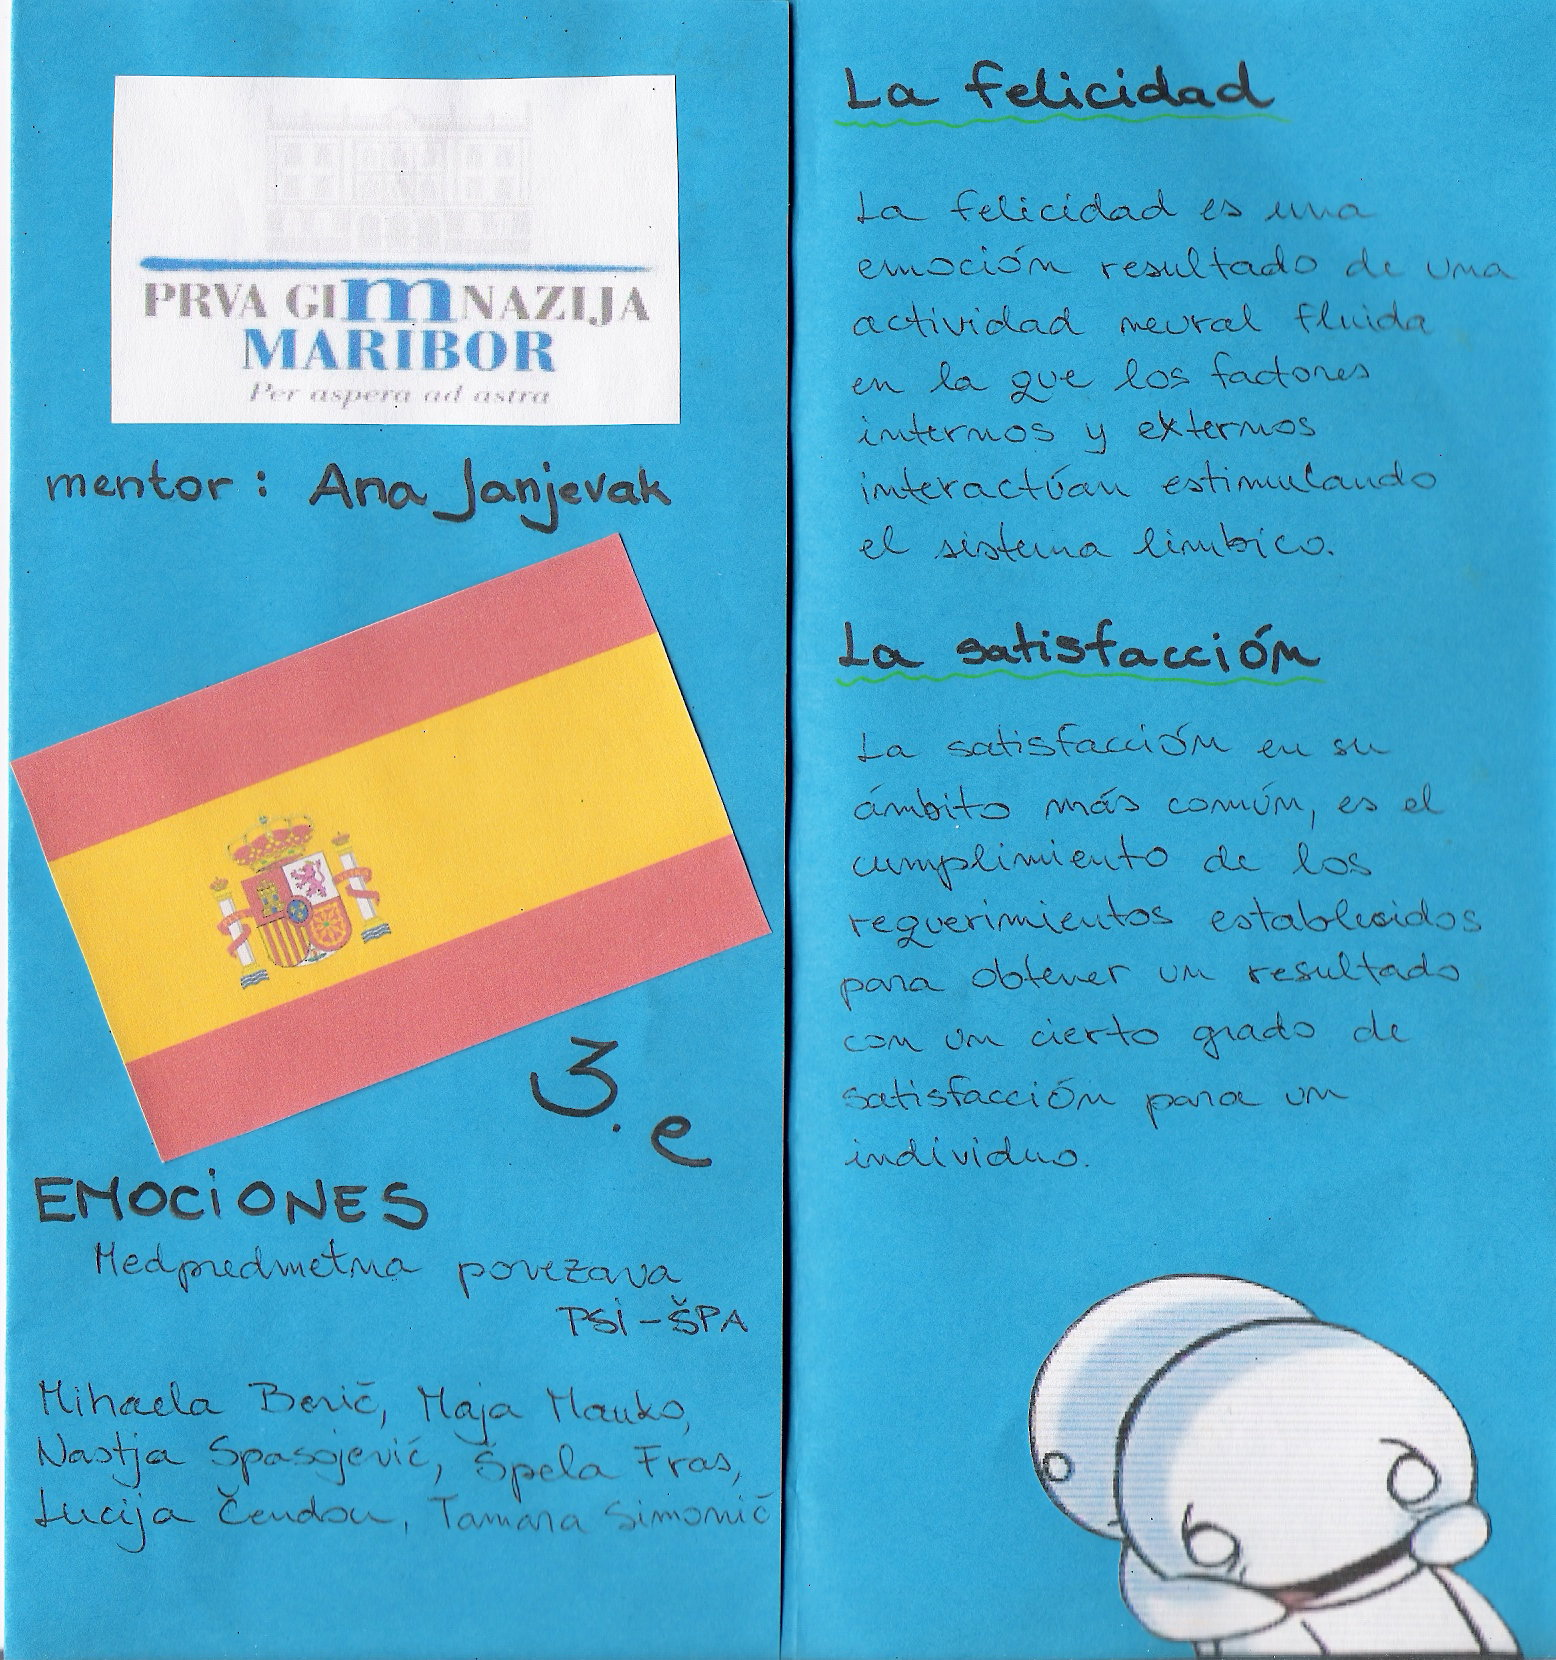 PRVA GIMNAZIJA
MARIBOR
Per aspera ad astra
mentor: Ana Janjevak
3. e
EMOCiONES
Medpredmetna povezava
PSi-ŠPA
Mihaela Berič, Maja Mauko,
Nastja Spasojević, Špela Fras,
Lucija Čendou, Tamara Simonič
La felicidad
La felicidad es una
emoción resultado de una
actividad neural fluida
en la que los factores
internos y externos
interactúan estimulando
el sistema limbico.
La satisfacción
La satisfacción en su
ámbito más común, es el
cumplimiento de los
requerimientos establecidos
para obtener un resultado
con un cierto grado de
satisfacción para un
individuo.